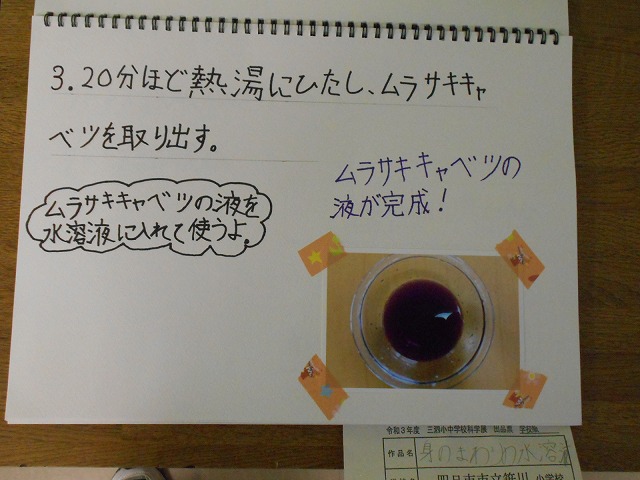 3.20分ほど熱湯にひたし、ムラサキキャ
ベツを取り出す。
ムラサキキャベツの液を
水溶液に入れて使うよ。
ムラサキキャベツの
液が完成！
令和3年度 三泗小中学校科学展 出品票
作品名 身のまわりの水溶液
四日市市立笹川小学校